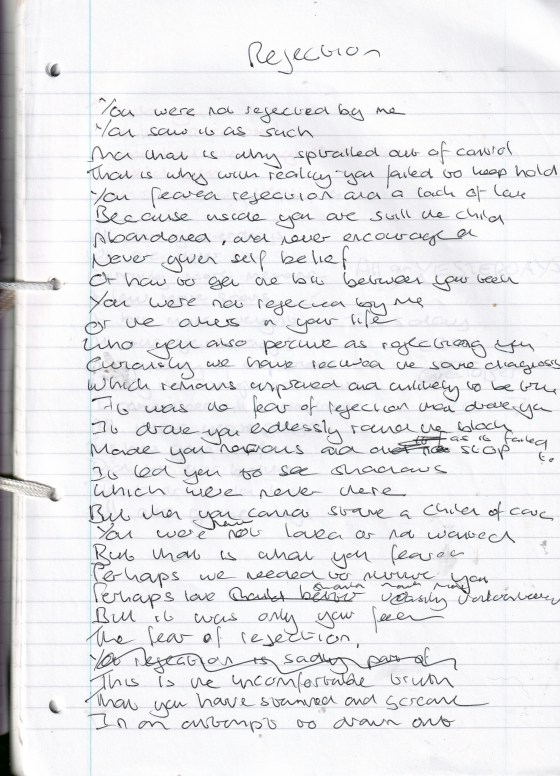 Rejection
You were not rejected by me
You saw it as such
And that is why spiralled out of control
That is why with reality you failed to keep hold
You feared rejection and a lack of love
Because inside you are still the child
Abandoned, and never encouraged
Never given self belief
Or how to get the bit between your teeth
You were not rejected by me
Or the others in your life
Who you also perceive as rejecting you
Curiously we have received the same diagnosis
Which remains unproved and unlikely to be true
It was the fear of rejection that drove you
It drove you endlessly round the block
Made you nervous and as it failed to stop
It led you to see shadows
Which were never there
But then you cannot starve a child of care
You were never not loved or not wanted
But that is what you feared
Perhaps we needed to nurture you
Perhaps love easily
But it was only your fear
The fear of rejection,
Yet rejection is sadly part of
This is the uncomfortable truth
That you have stammed and scream
In an attempt to drown out